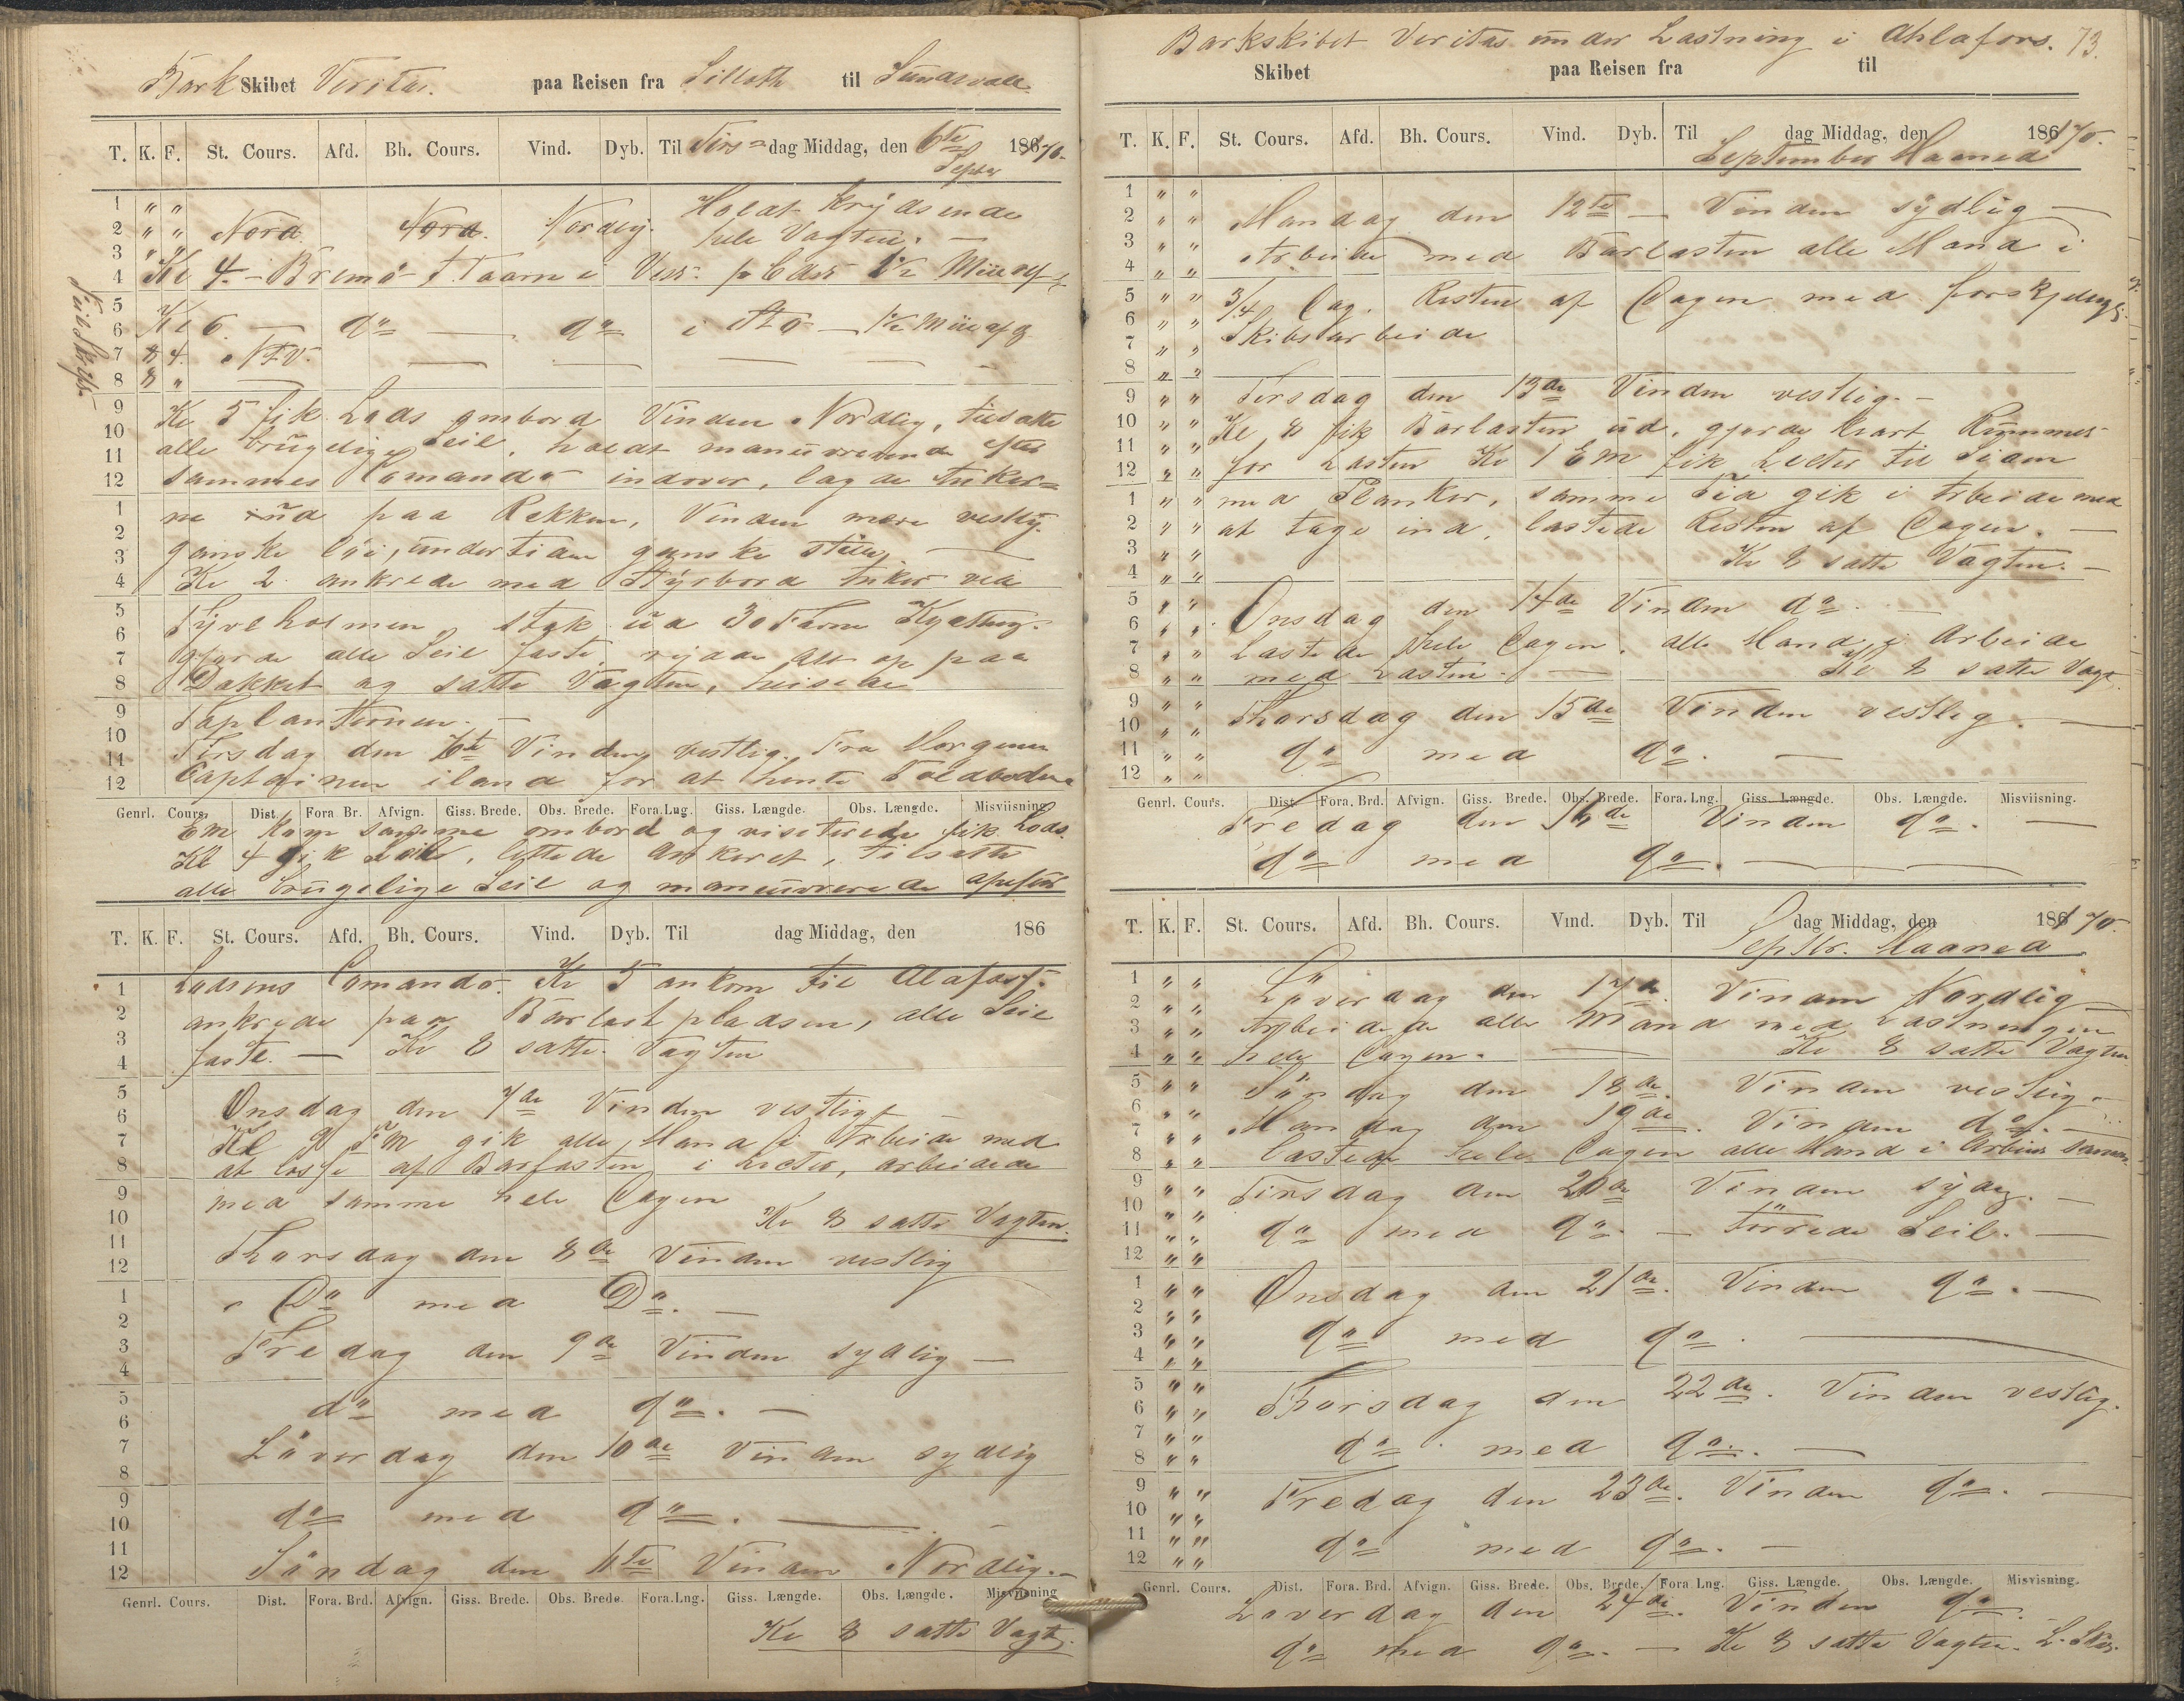 Bark Skibet Veritas. paa Reisen fra Silloth til Sundsvall
T. K. F. St. Cours. Afd. Bh. Cours. Vind. Dyb. Til Tirs- dag Middag, den 6te Septbr 1870.
1 " " Holdt krydsende
2 " " Nord. Nord. Nordlig. hele Vagten. —
3 " "
4 Kl 4. — Bremö F. Taarn i
5
6 Kl 6. — do — do i — 1/2 Miil af
7 8 4.
8 8 "
9 Kl 5 fik Lods ombord Vinden Nordlig, tilsatte
10 alle brugelige Seil, holdt manuvrerende efter
11 sammes Comando indover, lagde Anker=
12 ne ud paa Rekken, Vinden mere vestlig.
1 ganske löi, undertiden ganske stille, —
2 Kl 2 ankrede med Styrbord Anker ved
3 Tyveholmen, stak ud 30 Favne Kjetting.
4 gjorde alle Seil faste, rydde alt op paa
5 Dækket og satte Vagten, heisede
6 Toplanternen. —
7 Tirsdag den 6te Vinden vestlig. Fra Morgenen
8 Captainen iland for at hente Toldbetjent
9
10
11
12
Genrl. Cours. Dist. Fora Br. Afvign. Giss. Brede. Obs. Brede. Fora.Lng. Giss. Længde. Obs. Længde. Misviisning.
Em kom samme ombord og visiterede fik Lods.
Kl 4 gik Seils, lettede Ankeret, tilsatte
alle brugelige Seil og maneuvrerede
T. K. F. St. Cours. Afd. Bh. Cours. Vind. Dyb. Til dag Middag, den 186
1 Lodsens Comando. Kl 5 ankom til Alafors.
2 ankrede paa Barlastpladsen, alle Seil
3 faste. — Kl 8 satte Vagten
4
5 Onsdag den 7de Vinden vestlig —
6 Kl 9 F.M gik alle Mand i Arbeide med
7 at losse af Barlasten i Lecter, arbeidede
8 med samme hele Dagen
9 Kl 8 satte Vagten.
10
11 Thorsdag den 8de Vinden vestlig
12
1 Do med Do. —
2
3 Fredag den 9de Vinden sydlig —
4
5 do med do. —
6
7 Löverdag den 10de Vinden sydlig
8
9 do med do. —
10
11 Söndag den 11te Vinden Nordlig. —
12
Genrl. Cours. Dist. Fora. Brd. Afvign. Giss. Brede. Obs. Brede. Fora.Lng. Giss. Længde. Obs. Længde. Misvisning
Kl 8 satte Vagt.
Barkskibet Veritas under Lastning i Ahlafors. 73.
Skibet paa Reisen fra til
T. K. F. St. Cours. Afd. Bh. Cours. Vind. Dyb. Til dag Middag, den 1870.
September Maaned
1 " " Mandag den 12te — Vinden sydlig —
2 " " Arbeidet med Barlasten alle Mand i
3 " " 3/4 Dag. Resten af Dagen med forskjelligt
4 " " Skibsarbeide
5 " "
6 " "
7 " "
8 " "
9 " " Tirsdag den 13de Vinden vestlig. —
10 " " Kl 8 fik Barlasten ud, gjorde klart Rummet
11 " " for Lasten Kl 1 EM fik Lecter til Siden
12 " " med Planker, samme Tid gik i Arbeide med
1 " " at tage ind, lastede Resten af Dagen. —
2 " " Kl 8 satte Vagten. —
3
4 " "
5 " " Onsdag den 14de Vinden do. —
6 " " Lastede hele Dagen, alle Mand i Arbeide
7 " " med Lasten. — Kl 8 satte Vagt.
8 " "
9 " " Thorsdag den 15de Vinden vestlig. —
10 " "
11 " " do med do. —
12 " "
Genrl. Cours. Dist. Fora. Brd. Afvign. Giss. Brede. Obs. Brede. Fora.Lng. Giss. Længde. Obs. Længde. Misviisning.
Fredag den 16de Vinden do. —
do med do. —
T. K. F. St. Cours. Afd. Bh. Cours. Vind. Dyb. Til dag Middag, den 1870.
Septbr. Maaned
1 " " Löverdag den 17de. Vinden Nordlig —
2 " " Arbeidede alle Mand med Lastningen
3 " " hele Dagen. — Kl 8 satte Vagten
4 " "
5 " " Söndag den 18de. Vinden vestlig. —
6 " " Mandag den 19de. Vinden do. —
7 " " Lastede hele Dagen alle Mand i Arbeide
8 " "
9 " " Tirsdag den 20de Vinden sydlig. —
10 " "
11 " " do med do. — Törrede Seil. —
12 " "
1 " " Onsdag den 21de. Vinden do. —
2 " "
3 " " do med do. —
4 " "
5 " " Thorsdag den 22de. Vinden vestlig.
6 " "
7 " " do med do. —
8 " "
9 " " Fredag den 23de. Vinden do. —
10 " "
11 " " do med do. —
12 " "
Genrl. Cours. Dist. Fora. Brd. Afvign. Giss. Brede. Obs. Brede. Fora Lng. Giss. Længde. Obs. Længde. Misvisning.
Löverdag den 24de. Vinden do.
do med do. — Kl 8 satte Vagten.